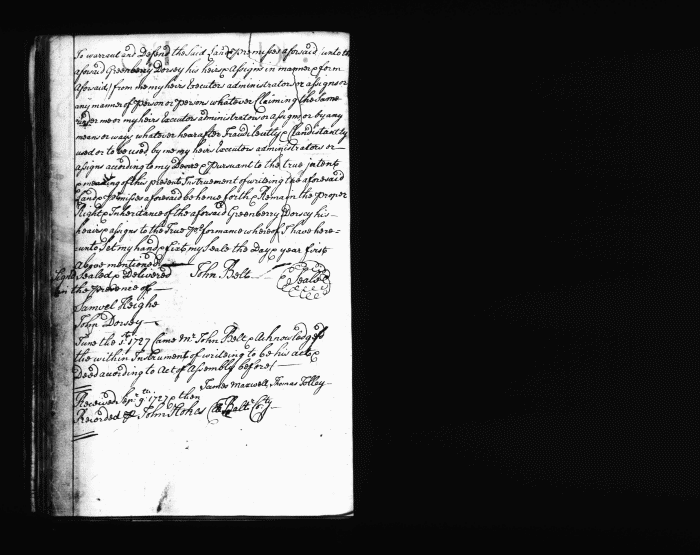 To warrant and Defend the Said Land & premisses aforesaid unto the
aforsaid Greenberry Dorsey his heirs & Assigns in manner & form
Aforsaid / from me my heirs Executors administrators or assigns or
any manner of Person or Persons whatever Claiming the Same
under me or my heirs Executors administrators or assigns or by any
means or ways whatever hearafter Fraudilently & Clandistantly
used or to be used by me my heirs Executors administrators or
assigns according to my Desire & Pursuant to the true intent
& meaning of this present Instruement of writeing the aforesaid
Land & Premisses aforesaid be hence forth & Remain the Proper
Right & Inheritance of the aforsaid Greenberry Dorsey his
heirs & assigns to the True Performance whereof I have here=
=unto Set my hand & fixt my Seale the Day & year first
Above mentioned
Sealed & Delivered John Belt Seale
in the Presence of
Samuel Heighe
John Dorsey
June the 1st 1727 Came Mr. John Belt & Acknowledged
the within Instrument of writeing to be his act &
Deed according to Act of Assembly before /
James Maxwell, Thomas Tolley
Received 9th 1727 & then
Recorded John Stokes Clk Balt Cty